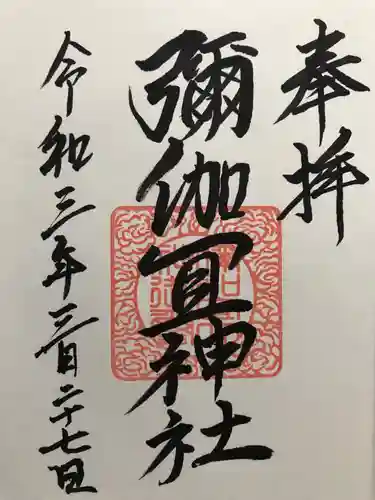 奉拝
彌伽宜神社
令和三年三月二十七日